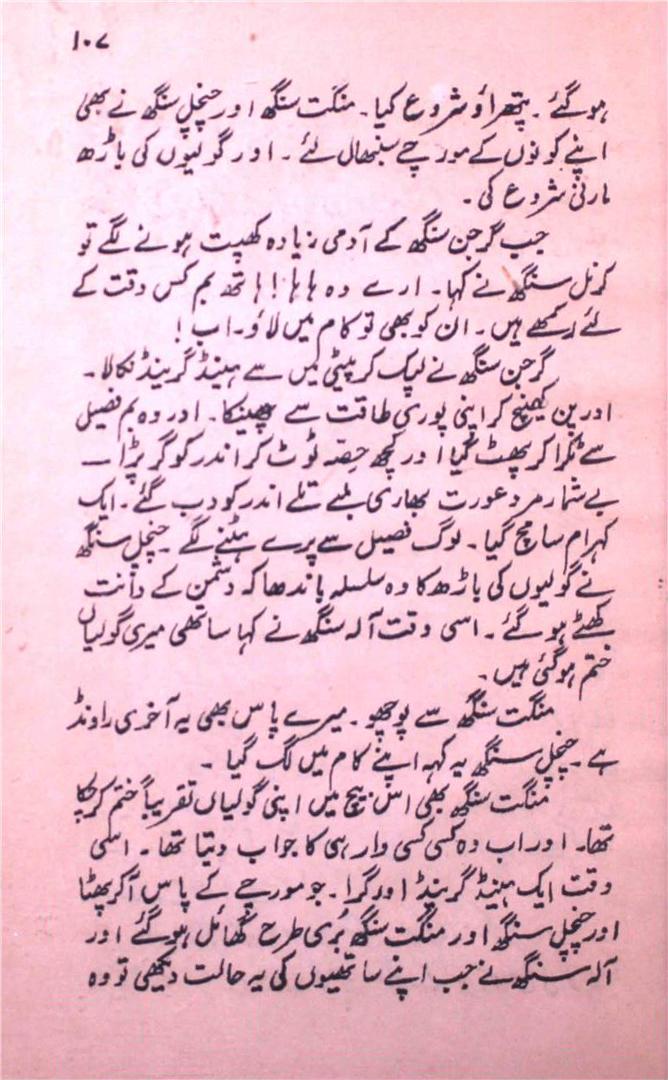 ۱۰۷
ہو گئے ۔ پتھراؤ شروع کیا ۔ منگت سنگھ اور چنچل سنگھ نے بھی
اپنے کونوں کے مورچے سنبھال لئے ۔ اور گولیوں کی باڑھ
مارنی شروع کی ۔
جب گرجن سنگھ کے آدمی زیادہ کھپت ہونے لگے تو
کرنل سنگھ نے کہا ۔ ارے وہ ہاہا ! ہاتھ بم کس وقت کے
لئے رکھے ہیں ۔ ان کو بھی تو کام میں لاؤ ۔ اب !
گرجن سنگھ نے لپک کر پیٹی میں سے ہینڈ گرینڈ نکالا ۔
اور پن کھینچ کر اپنی پوری طاقت سے پھینکا ۔ اور وہ بم فصیل
سے ٹکرا کر پھٹ گیا اور کچھ حصّہ ٹوٹ کر اندر کو گر پڑا —
بے شمار مرد عورت بھاری ملبے تلے اندر کو دب گئے ۔ ایک
کہرام سا مچ گیا ۔ لوگ فصیل سے پرے ہٹنے لگے ۔ چنچل سنگھ
نے گولیوں کی باڑھ کا وہ سلسلہ باندھا کہ دشمن کے دانت
کھٹے ہو گئے ۔ اسی وقت آلہ سنگھ نے کہا ساتھی میری گولیاں
ختم ہو گئی ہیں ۔
منگت سنگھ سے پوچھو ۔ میرے پاس بھی یہ آخری راونڈ
ہے ۔ چنچل سنگھ یہ کہہ اپنے کام میں لگ گیا ۔
منگت سنگھ بھی اس بیچ میں اپنی گولیاں تقریباً ختم کر چکا
تھا ۔ اور اب وہ کسی کسی وار ہی کا جواب دیتا تھا ۔ اسی
وقت ایک ہینڈ گرینڈ اور گرا ۔ جو مورچے کے پاس آ کر پھٹا
اور چنچل سنگھ اور منگت سنگھ بُری طرح گھائل ہو گئے اور
آلہ سنگھ نے جب اپنے ساتھیوں کی یہ حالت دیکھی تو وہ